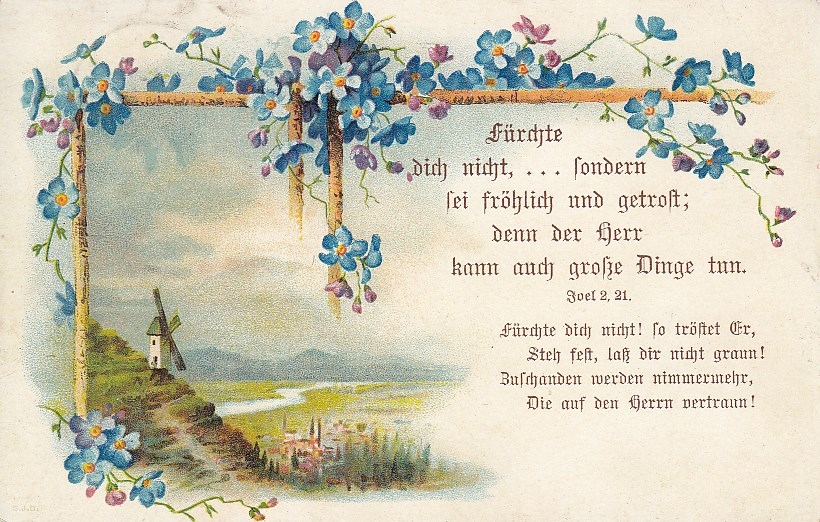 Fürchte
dich nicht, ... sondern
sei fröhlich und getrost;
denn der Herr
kann auch große Dinge tun.
Joel 2, 21.
Fürchte dich nicht! so tröstet Er,
Steh fest, laß dir nicht graun!
Zuschanden werden nimmermehr,
Die auf den Herrn vertraun!